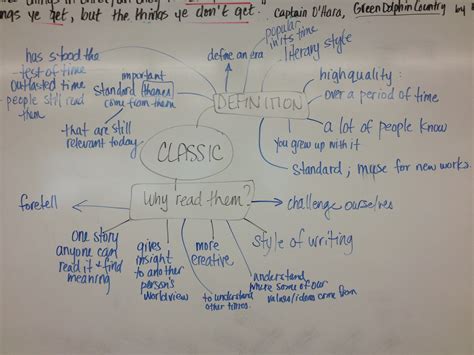 ings ye get, but the things ye don't get." Captain O'Hara, Green Dolphin Country by
has stood the
test of time
outlasted time
people still read
them
important
Standard themes
come from them
- that are still
relevant today
define an era
popular
in its time
literary style
DEFINITION
high quality:
over a period of time
a lot of people know
you grew up with it
standard; muse for new works.
CLASSIC
Why read them?
foretell
challenge ourselves
one story
anyone can
read it & find
meaning
gives
insight
to another
person's
worldview
more
creative
to understand
other times.
understand
where some of our
values/ideas come from
style of writing